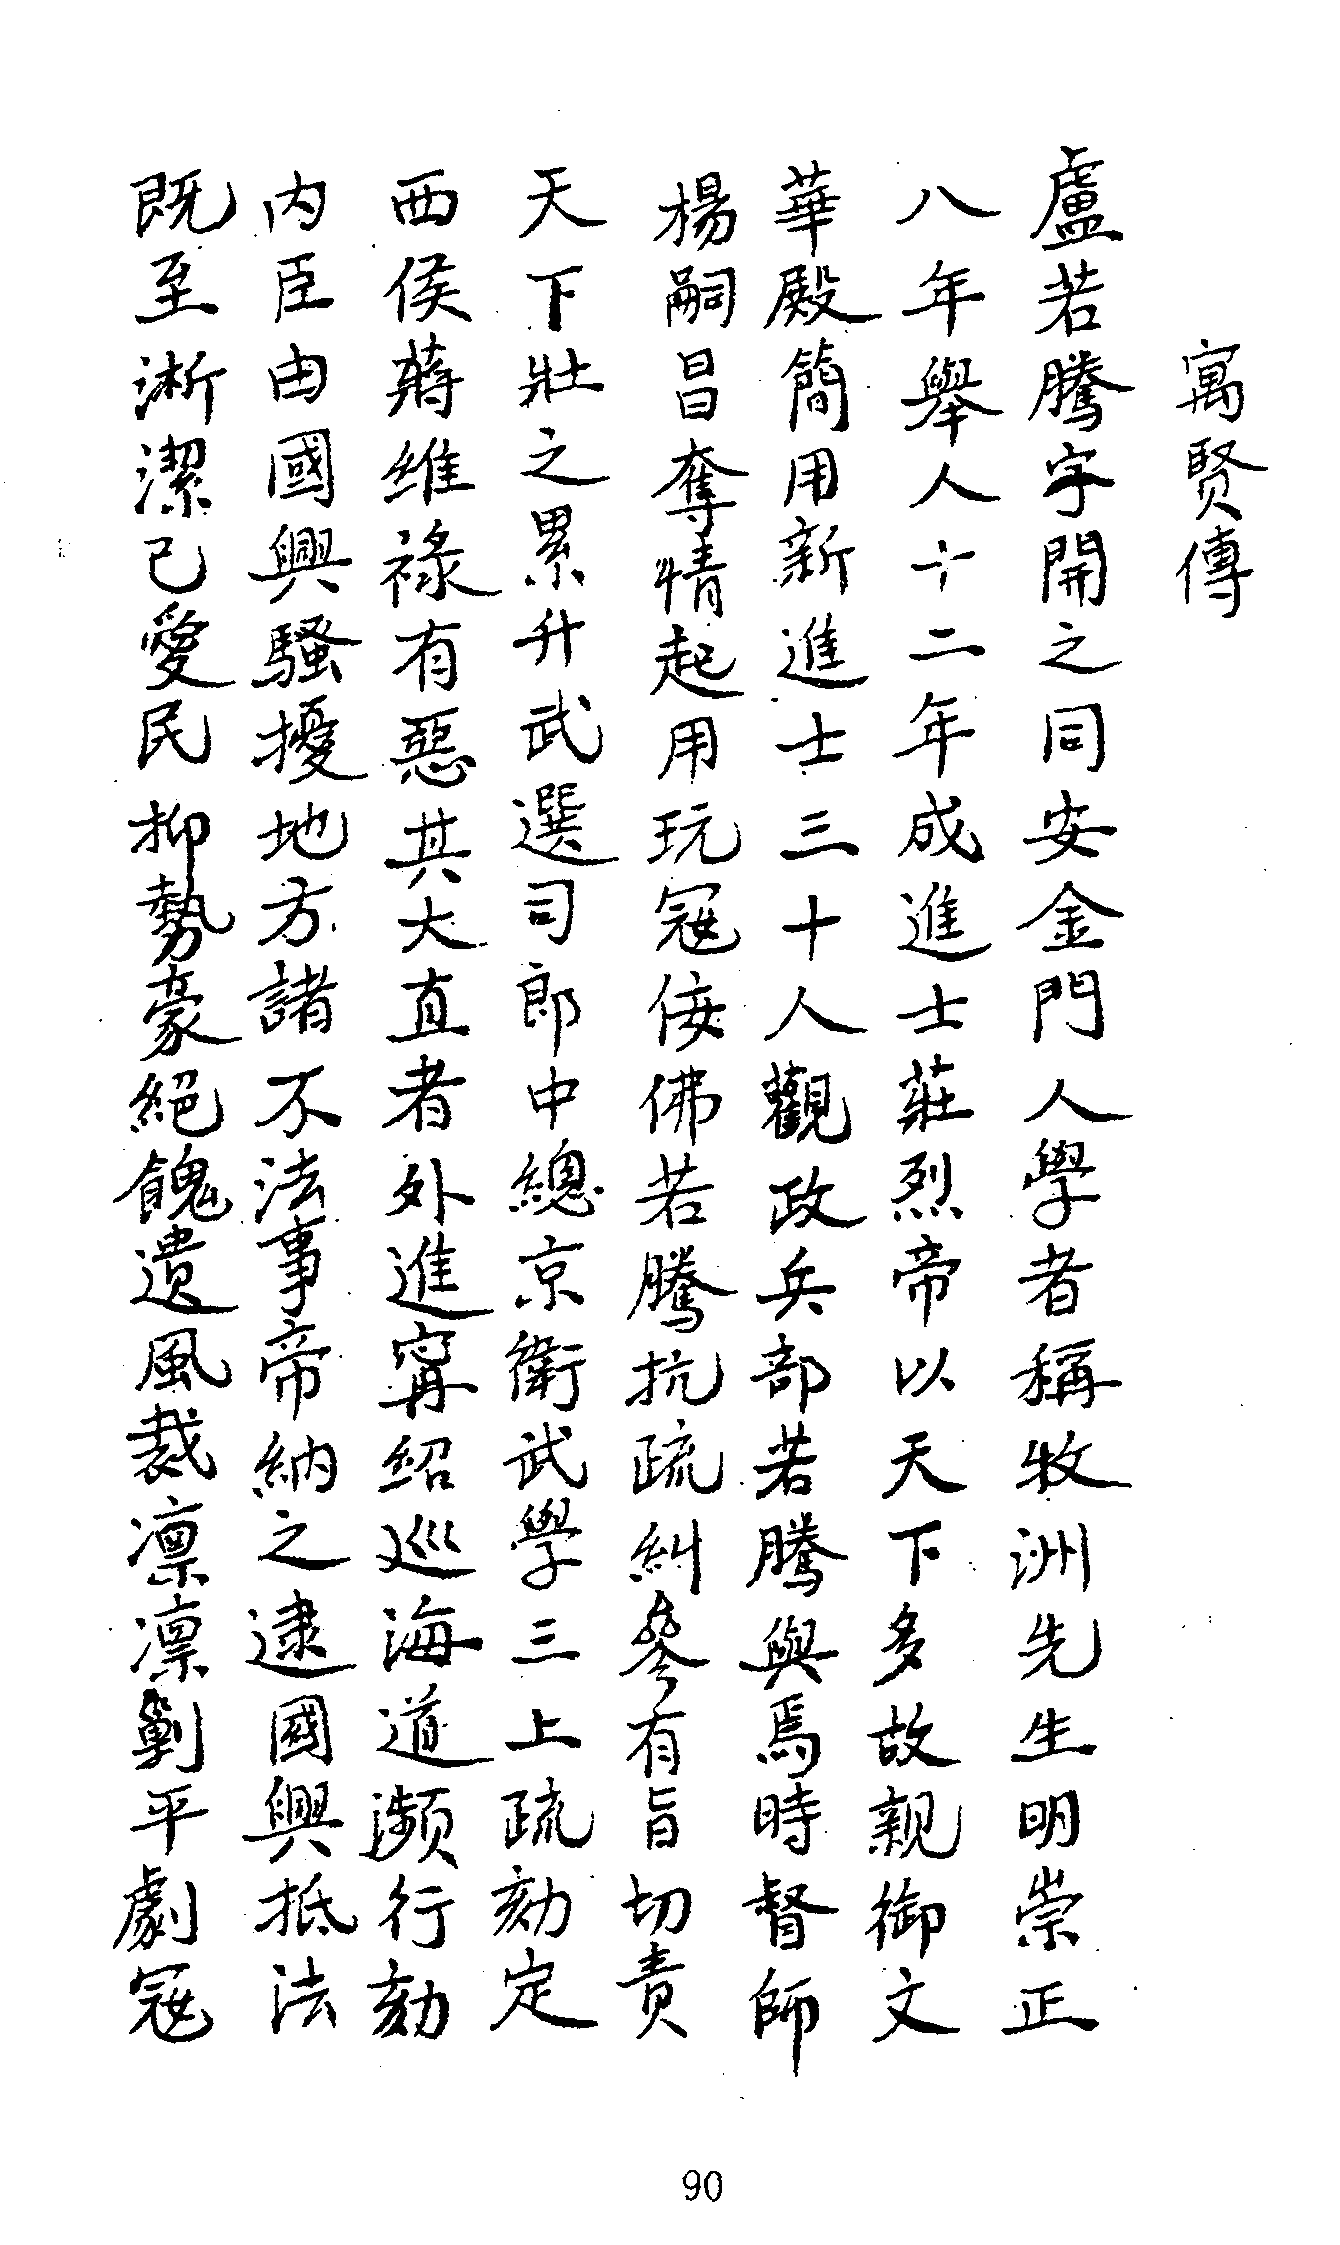 寓賢傳
盧若騰字開之同安金門人學者稱牧洲先生明崇正
八年舉人十二年成進士莊烈帝以天下多故親御文
華殿簡用新進士三十人觀政兵部若騰與焉時督師
楊嗣昌奪情起用玩寇佞佛若騰抗疏糾參有旨切責
天下壯之累升武選司郎中總京衛武學三上疏劾定
西侯蔣維祿有惡其大直者外進寗紹巡海道瀕行劾
內臣由國興騷擾地方諸不法事帝納之逮國興抵法
既至淅潔己愛民抑勢豪絕餽遺風裁凛凛剿平劇寇
90